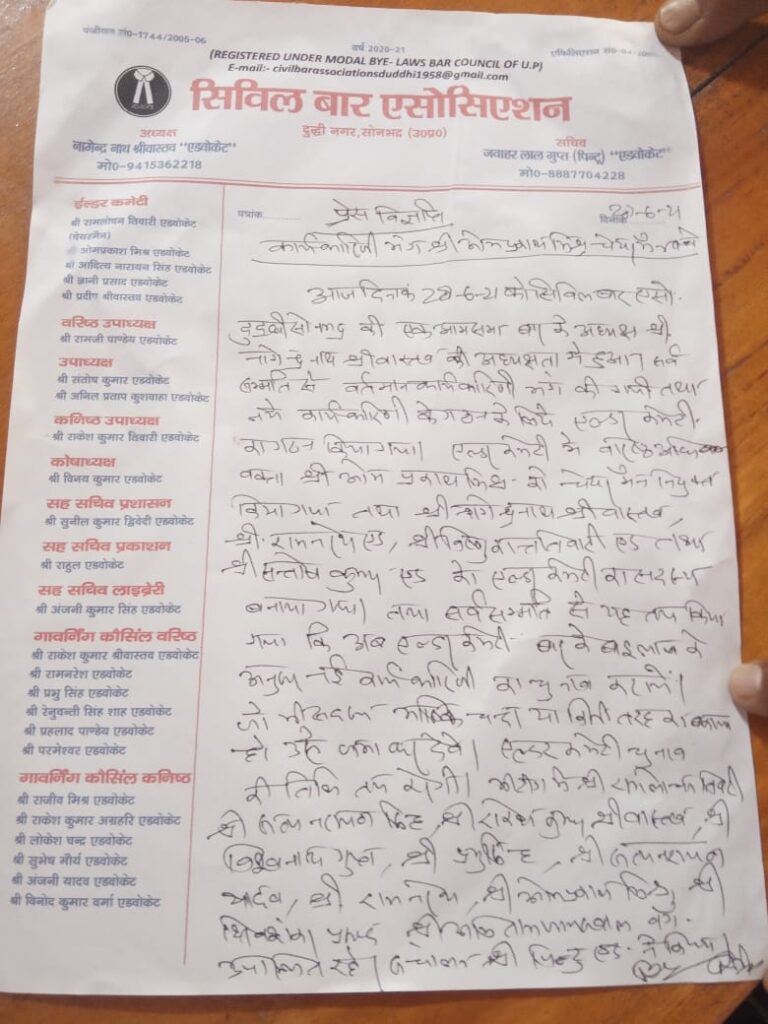 पंजीयन सं0-1744/2005-06
वर्ष 2020-21
(REGISTERED UNDER MODAL BYE- LAWS BAR COUNCIL OF U.P)
E-mail:- civilbarassociationsduddhi1958@gmail.com
सिविल बार एसोसिएशन
दुद्धी नगर, सोनभद्र (उ0प्र0)
अध्यक्ष
नागेन्द्र नाथ श्रीवास्तव "एडवोकेट"
मो0-9415362218
सचिव
जवाहर लाल गुप्त (पिन्टू) "एडवोकेट"
मो0-8887704228
ईल्डर कमेटी
श्री रामलोचन तिवारी एडवोकेट
(चेयरमैन)
श्री ओमप्रकाश मिश्र एडवोकेट
श्री आदित्य नारायन सिंह एडवोकेट
श्री ज्ञानी प्रसाद एडवोकेट
श्री प्रदीप श्रीवास्तव एडवोकेट
वरिष्ठ उपाध्यक्ष
श्री रामजी पाण्डेय एडवोकेट
उपाध्यक्ष
श्री संतोष कुमार एडवोकेट
श्री अनिल प्रताप कुशवाहा एडवोकेट
कनिष्ठ उपाध्यक्ष
श्री राकेश कुमार तिवारी एडवोकेट
कोषाध्यक्ष
श्री विजय कुमार एडवोकेट
सह सचिव प्रशासन
श्री सुनील कुमार द्विवेदी एडवोकेट
सह सचिव प्रकाशन
श्री राहुल एडवोकेट
सह सचिव लाइब्रेरी
श्री अंजनी कुमार सिंह एडवोकेट
गावर्निंग कौसिंल वरिष्ठ
श्री राकेश कुमार श्रीवास्तव एडवोकेट
श्री रामनरेश एडवोकेट
श्री प्रभु सिंह एडवोकेट
श्री रेनुवन्ती सिंह शाह एडवोकेट
श्री प्रहलाद पाण्डेय एडवोकेट
श्री परमेश्वर एडवोकेट
गावर्निंग कौसिंल कनिष्ठ
श्री राजीव मिश्र एडवोकेट
श्री राकेश कुमार अग्रहरि एडवोकेट
श्री लोकेश चन्द्र एडवोकेट
श्री सुभेष मौर्य एडवोकेट
श्री अंजनी यादव एडवोकेट
श्री विनोद कुमार वर्मा एडवोकेट
पत्रांक
प्रेस विज्ञप्ति
दिनांक
कार्यकारिणी भंग श्री ओमप्रकाश मिश्र चेयरमैन बने
आज दिनांक 28-6-21 को सिविल बार एसो.
की एक आमसभा बार के अध्यक्ष श्री
नागेन्द्र नाथ श्रीवास्तव की अध्यक्षता में हुआ। सर्व
सम्मति से वर्तमान कार्यकारिणी भंग की गयी तथा
नये कार्यकारिणी के गठन के लिये एल्डर कमेटी
का गठन किया गया। एल्डर कमेटी के
श्री ओम प्रकाश मिश्र को चेयरमैन नियुक्त
किया गया तथा श्री नागेन्द्रनाथ श्रीवास्तव,
श्री रामनरेश एड, श्री विष्णु कान्त तिवारी एड तथा
श्री सन्तोष कुमार एड को एल्डर कमेटी का सदस्य
बनाया गया। तथा सर्वसम्मति से यह तय किया
गया कि अब एल्डर कमेटी बार के बाइलाज के
अनुरूप नई कार्यकारिणी का चुनाव करालें।
जो भी सदस्य मासिक चन्दा या किसी तरह का बकाया
हो उसे जमा कर देवे। एल्डर कमेटी चुनाव
की तिथि तय करेगी। श्री रामलोचन तिवारी
श्री सत्यनारायण सिंह, श्री राकेश कुमार श्रीवास्तव, श्री
विश्वनाथ गुप्त, श्री प्रभु सिंह, श्री सत्यनारायण
यादव, श्री रामनरेश, श्री ओमप्रकाश सिंह, श्री
प्रसाद श्री
उपस्थित रहे। संचालन श्री पिन्टू एड. ने किया।